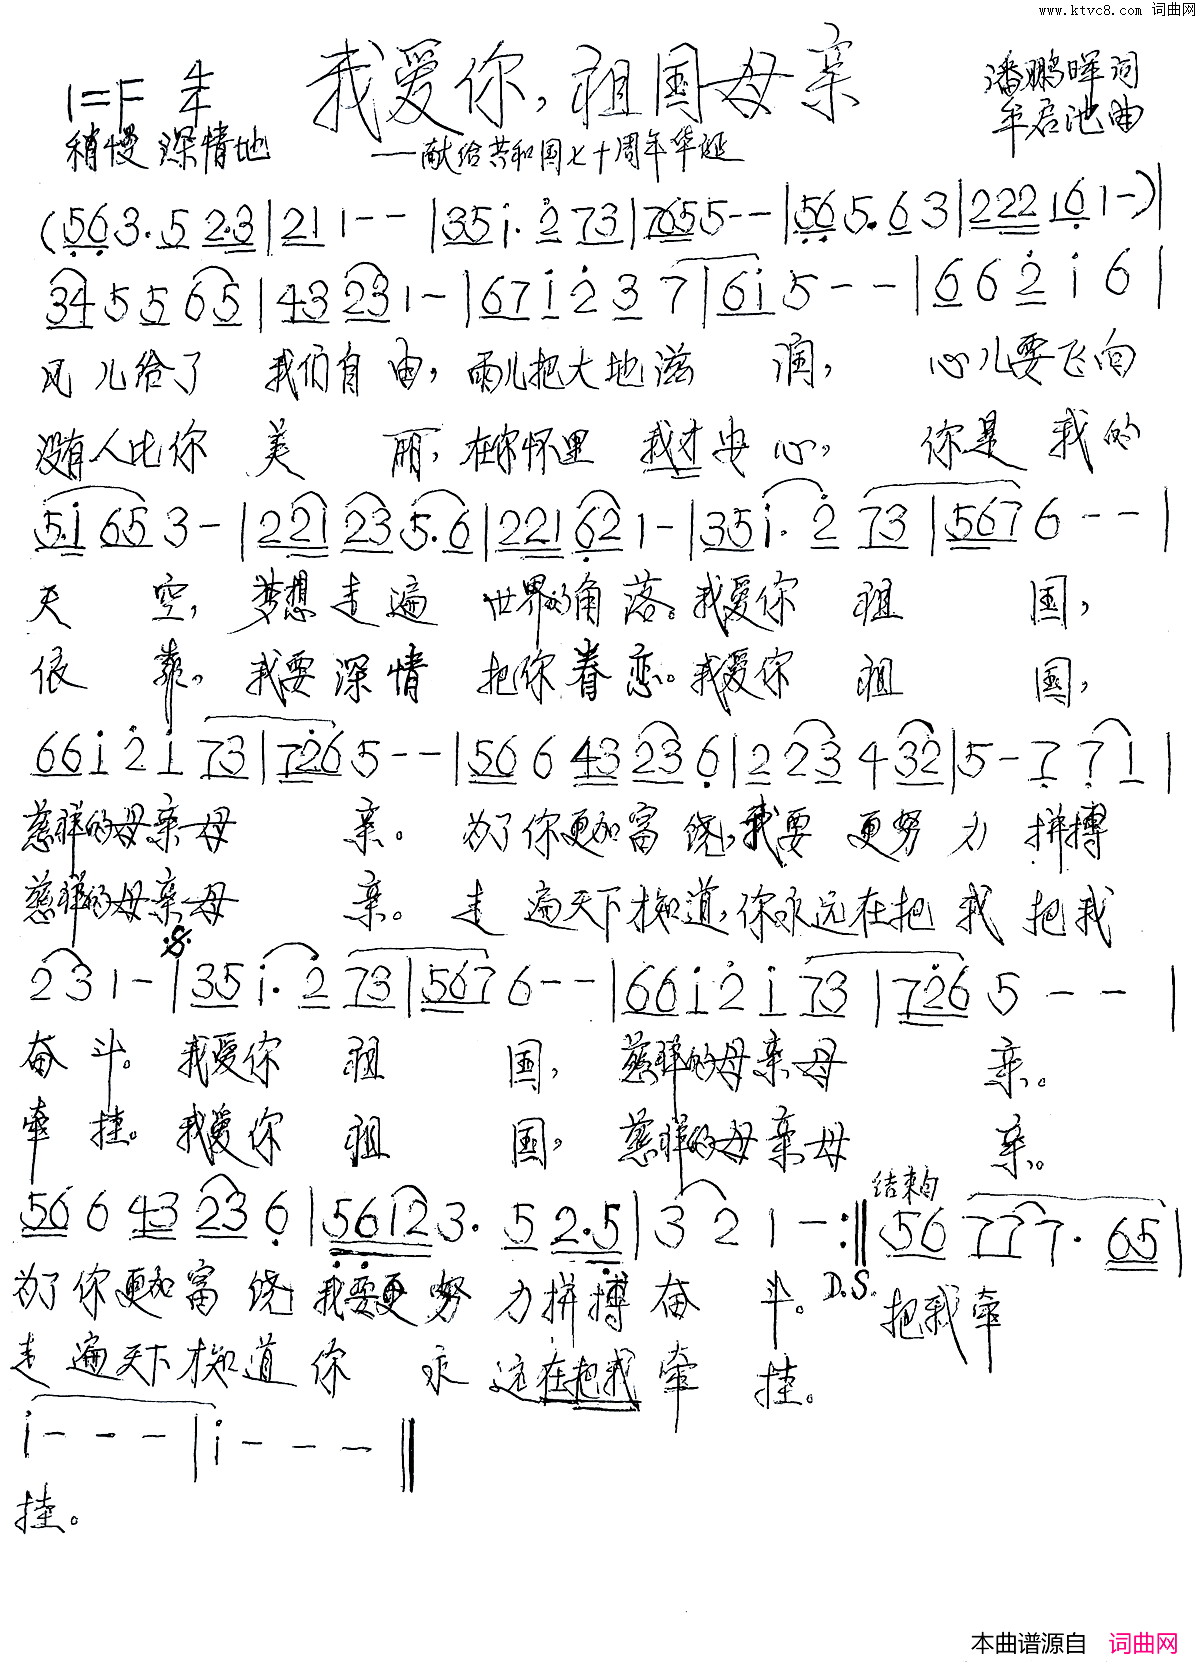 www.ktvc8.com 词曲网
我爱你,祖国母亲
潘鹏晖词
牟启池曲
1=F 4/4
稍慢 深情地
——献给共和国七十周年华诞
(563.5 2.3|211--|35i.2 73|7655--|565.63|222161-)|
34 5 5 65|43 23 1-|67i 2 3 7|6i 5--|6 6 2 i 6|
风儿给了 我们自由,雨儿把大地滋 润, 心儿要飞向
没有人比你 美 丽,在你怀里 我才安心, 你是 我的
5.i 65 3-|221 23 5.6|221 62 1-|35i. 2 73|567 6--|
天 空, 梦想走遍 世界的角落。我爱你 祖 国,
依 靠, 我要深情 把你眷恋。我爱你 祖 国,
66i 2 i 73|726 5--|56 6 43 23 6|2 23 4 32|5- 7 7 1|
慈祥的母亲母 亲。 为了你更加富饶,我要 更努 力 拼搏
慈祥的母亲母 亲。 走 遍天下才知道,你永远在把 我 把我
2 3 1-|35i. 2 73|567 6--|66i 2 i 73|726 5--|
奋 斗。 我爱你 祖 国, 慈祥的母亲母 亲。
牵 挂。 我爱你 祖 国, 慈祥的母亲母 亲。
结束句
56 6 43 23 6|5612 3. 5 2.5|3 2 1-:‖56 77 7. 65|
D.S.
为了你更加富 饶 我要更努 力拼搏奋 斗。 把我牵
走 遍天下才知道 你 永 远在把我 牵 挂。
i---|i---‖
挂。
本曲谱源自 词曲网